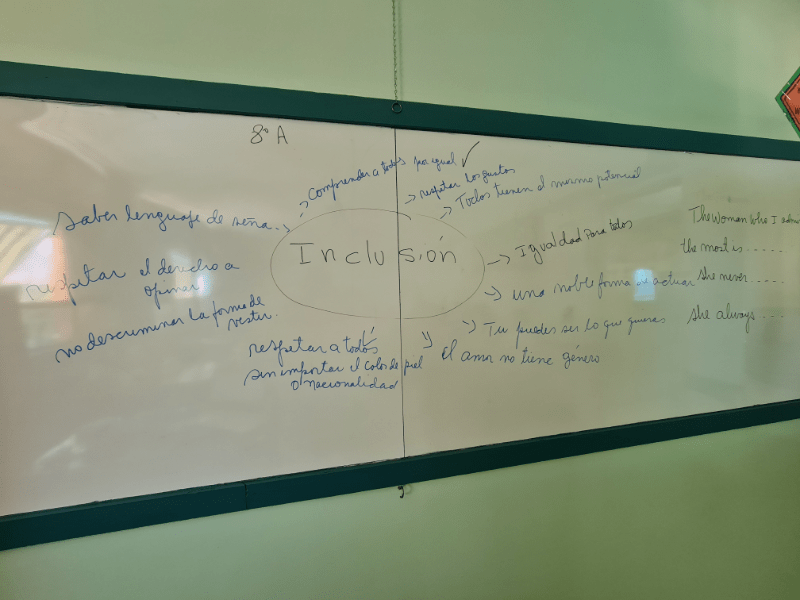 8º A
Comprender a todos por igual
respetar los gustos
Todos tienen el mismo potencial
saber lenguaje de seña
Inclusión
Igualdad para todos
respetar el derecho a
opinar
una noble forma de actuar
no descriminar la forma de
vestir.
Tu puedes ser lo que quieras
respetar a todos
sin importar el color de piel
o nacionalidad
El amor no tiene género
The woman who I
the most is .....
she never .....
she always ....